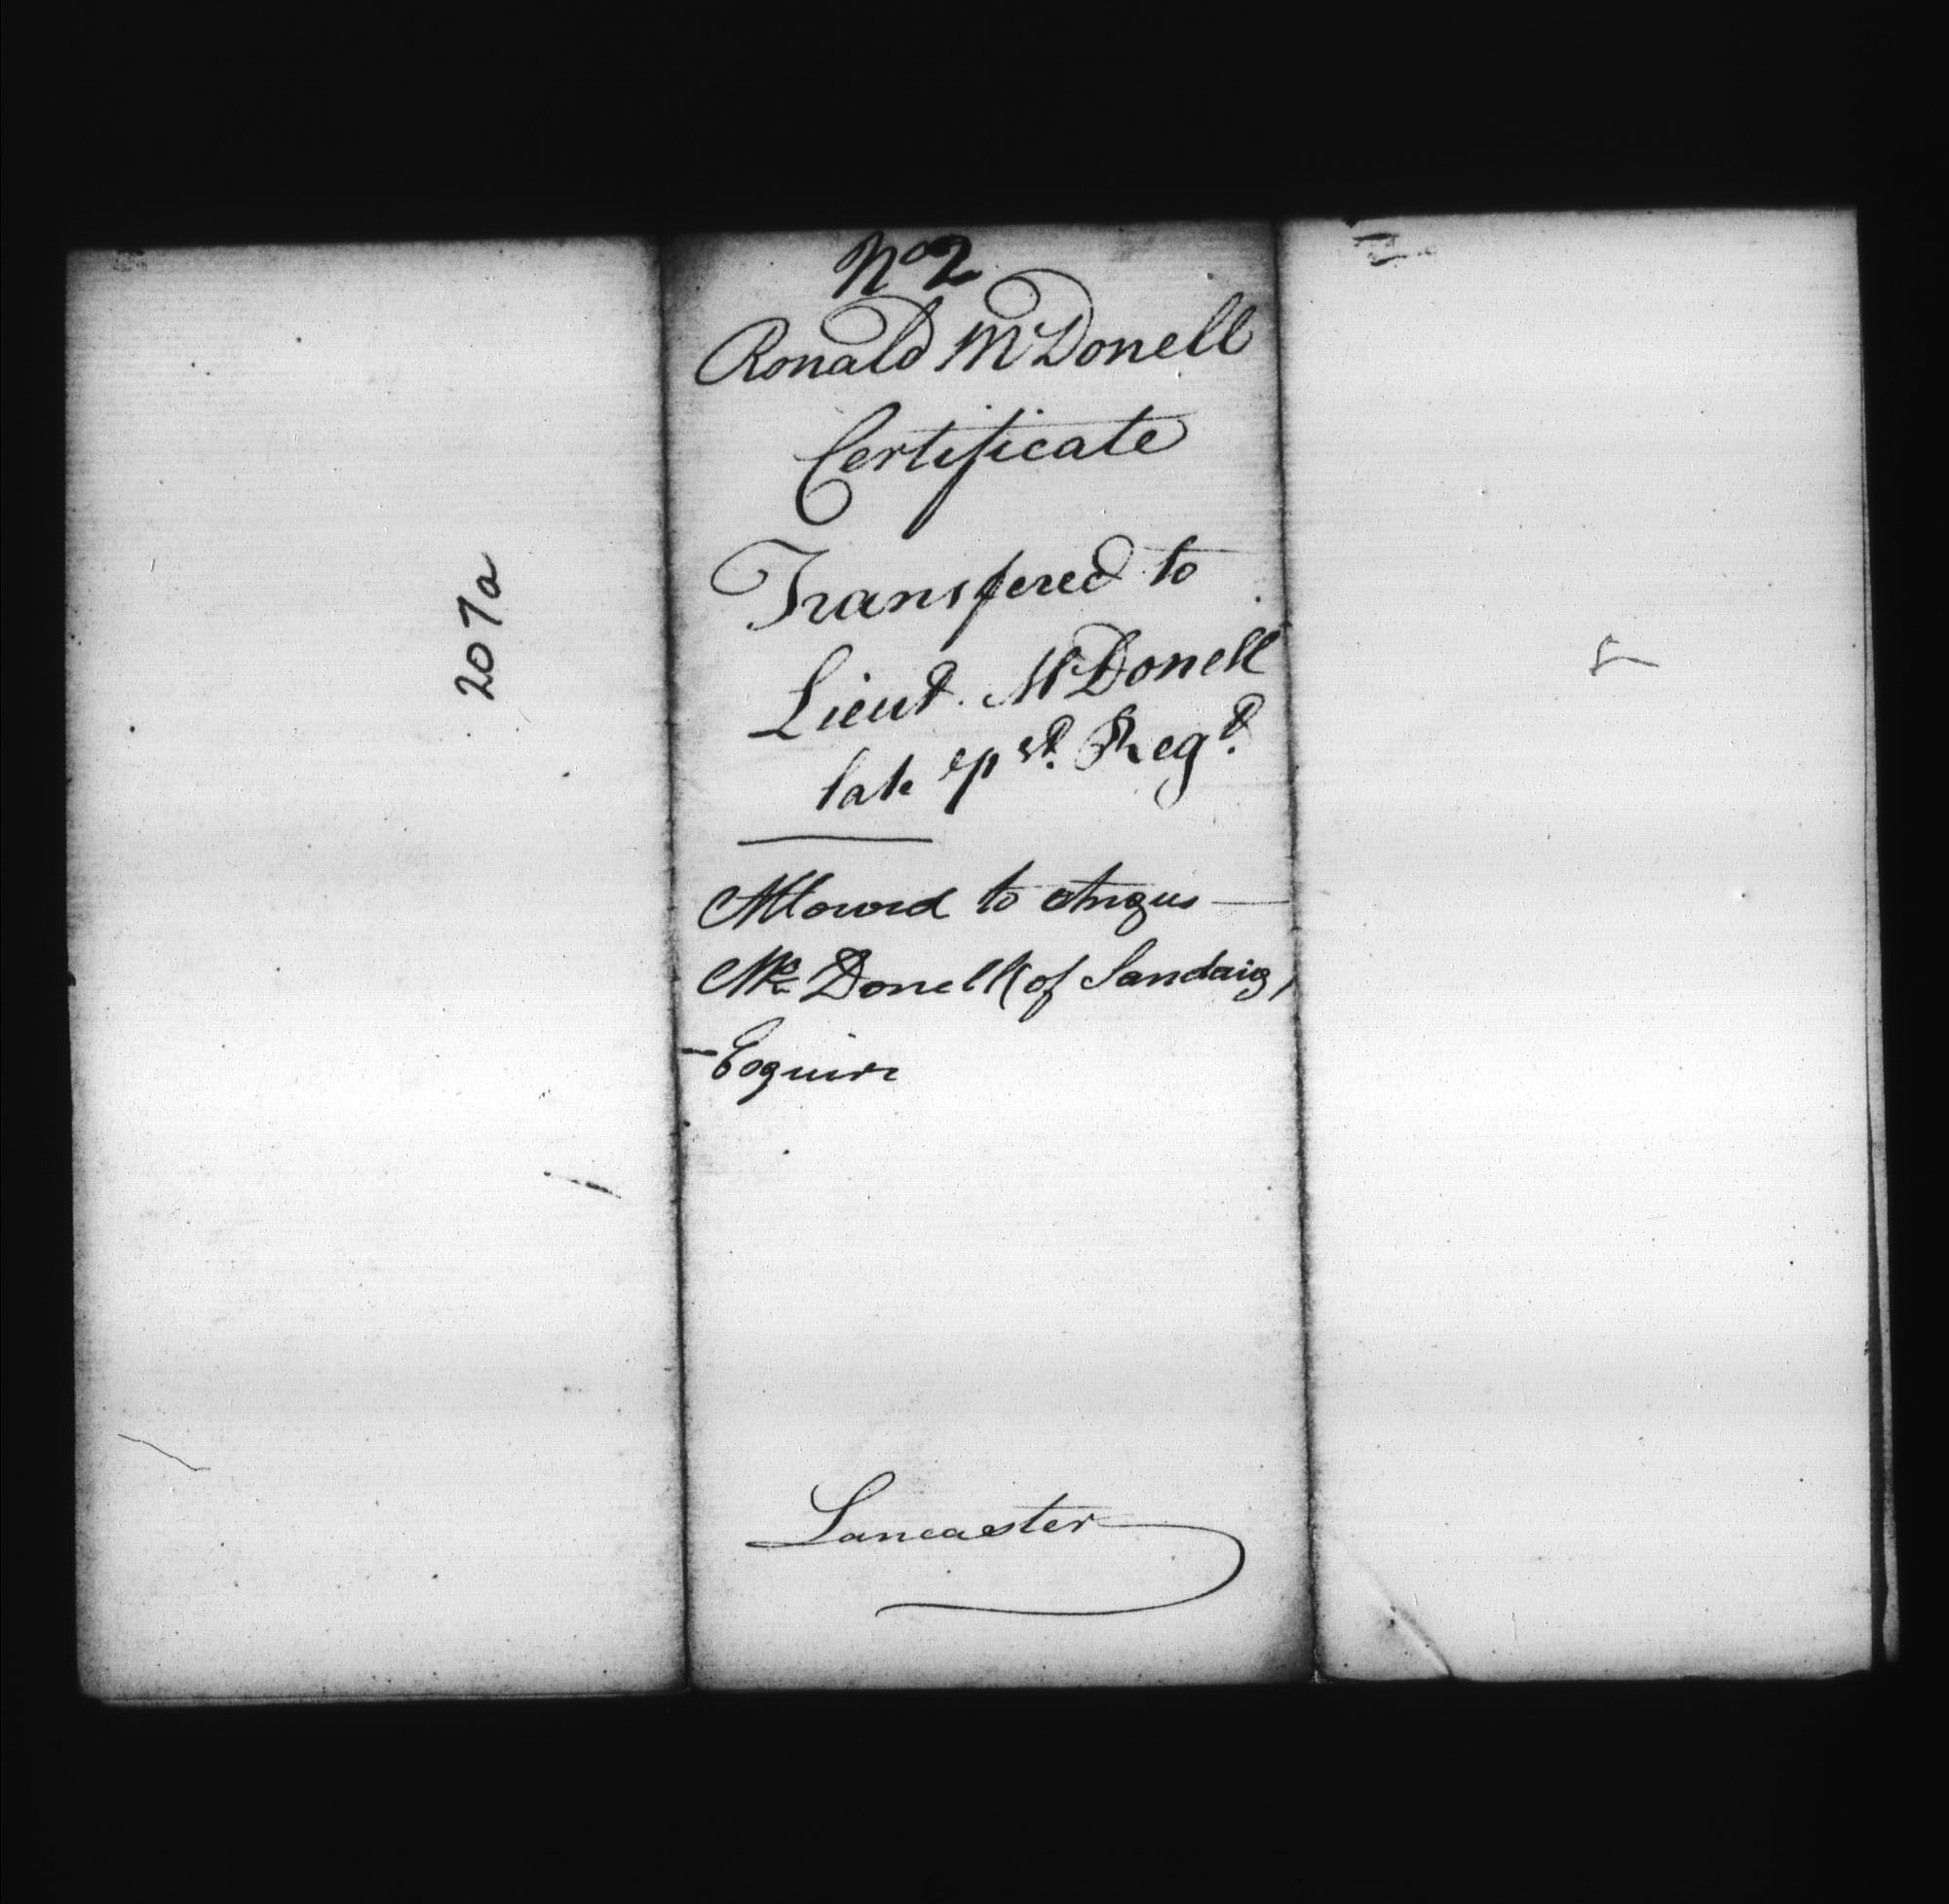 207a
No 2
Ronald McDonell
Certificate
Transfered to
Lieut. McDonell
late 71st. Regt.
Allowed to Angus —
Mc Donell (of Sandaig)
— Esquire
Lancaster